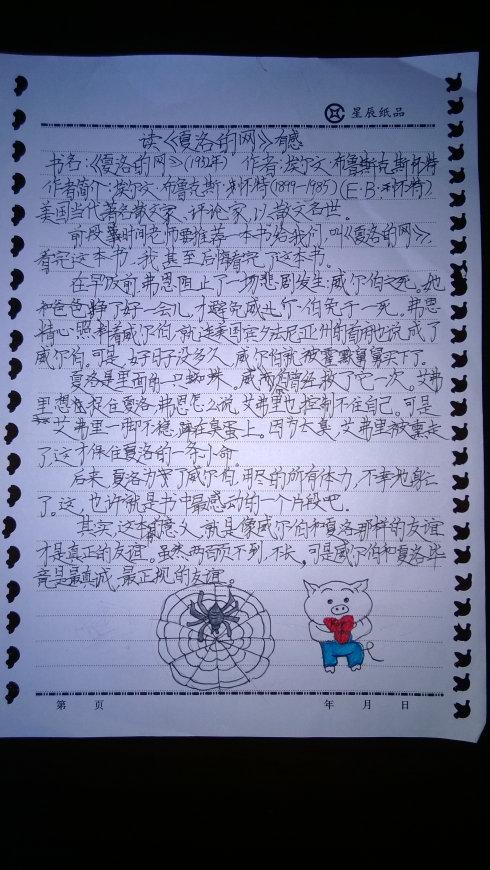 星辰纸品
读《夏洛的网》有感
书名:《夏洛的网》(1932年) 作者:埃尔文·布鲁斯克斯·怀特
作者简介:埃尔文·布鲁克斯·怀特(1899-1985)(E·B·怀特)
美国当代著名散文家、评论家,以散文名世。
前段时间老师要推荐一本书给我们,叫《夏洛的网》,
看完这本书,我甚至后悔看完了这本书。
在早饭前弗恩阻止了一场悲剧发生:威尔伯之死。她
和爸爸挣了好一会儿,才避免威尔伯免于一死。弗恩
精心照料着威尔伯,就连美国宾夕法尼亚州的首府也说成了
威尔伯。可是,好日子没多久,威尔伯就被霍默舅舅买下了。
夏洛是里面的一只蜘蛛。威尔伯曾经救了它一次。艾弗
里想捉住夏洛,弗恩怎么说,艾弗里也控制不住自己。可是
艾弗里一脚不稳,蹲在臭蛋上。因为太臭,艾弗里放弃走
了,这才保住夏洛的一条小命。
后来,夏洛为了威尔伯,用尽的所有体力,不幸地身亡
了。这,也许就是书中最感动的一个片段吧。
其实,这本书的意义,就是像威尔伯和夏洛那样的友谊
才是真正的友谊。虽然两百页不到,不长,可是威尔伯和夏洛毕
竟是最真诚、最正规的友谊。
第 页 年 月 日